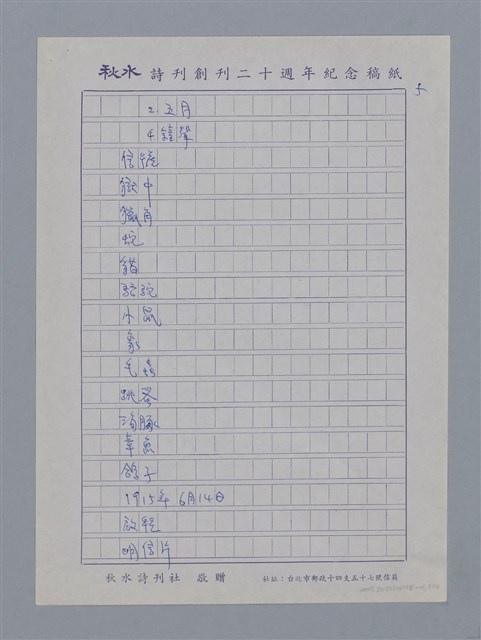 秋水 詩刊創刊二十週年紀念稿紙
5
2. 五月
4. 鐘聲
信號
獄中
獨角
蛇
貓
駱駝
小鼠
象
毛蟲
跳蚤
海豚
章魚
鴿子
1915年6月14日
啟程
明信片
秋水詩刊社 敬贈
社址：台北市郵政十四支五十七號信箱